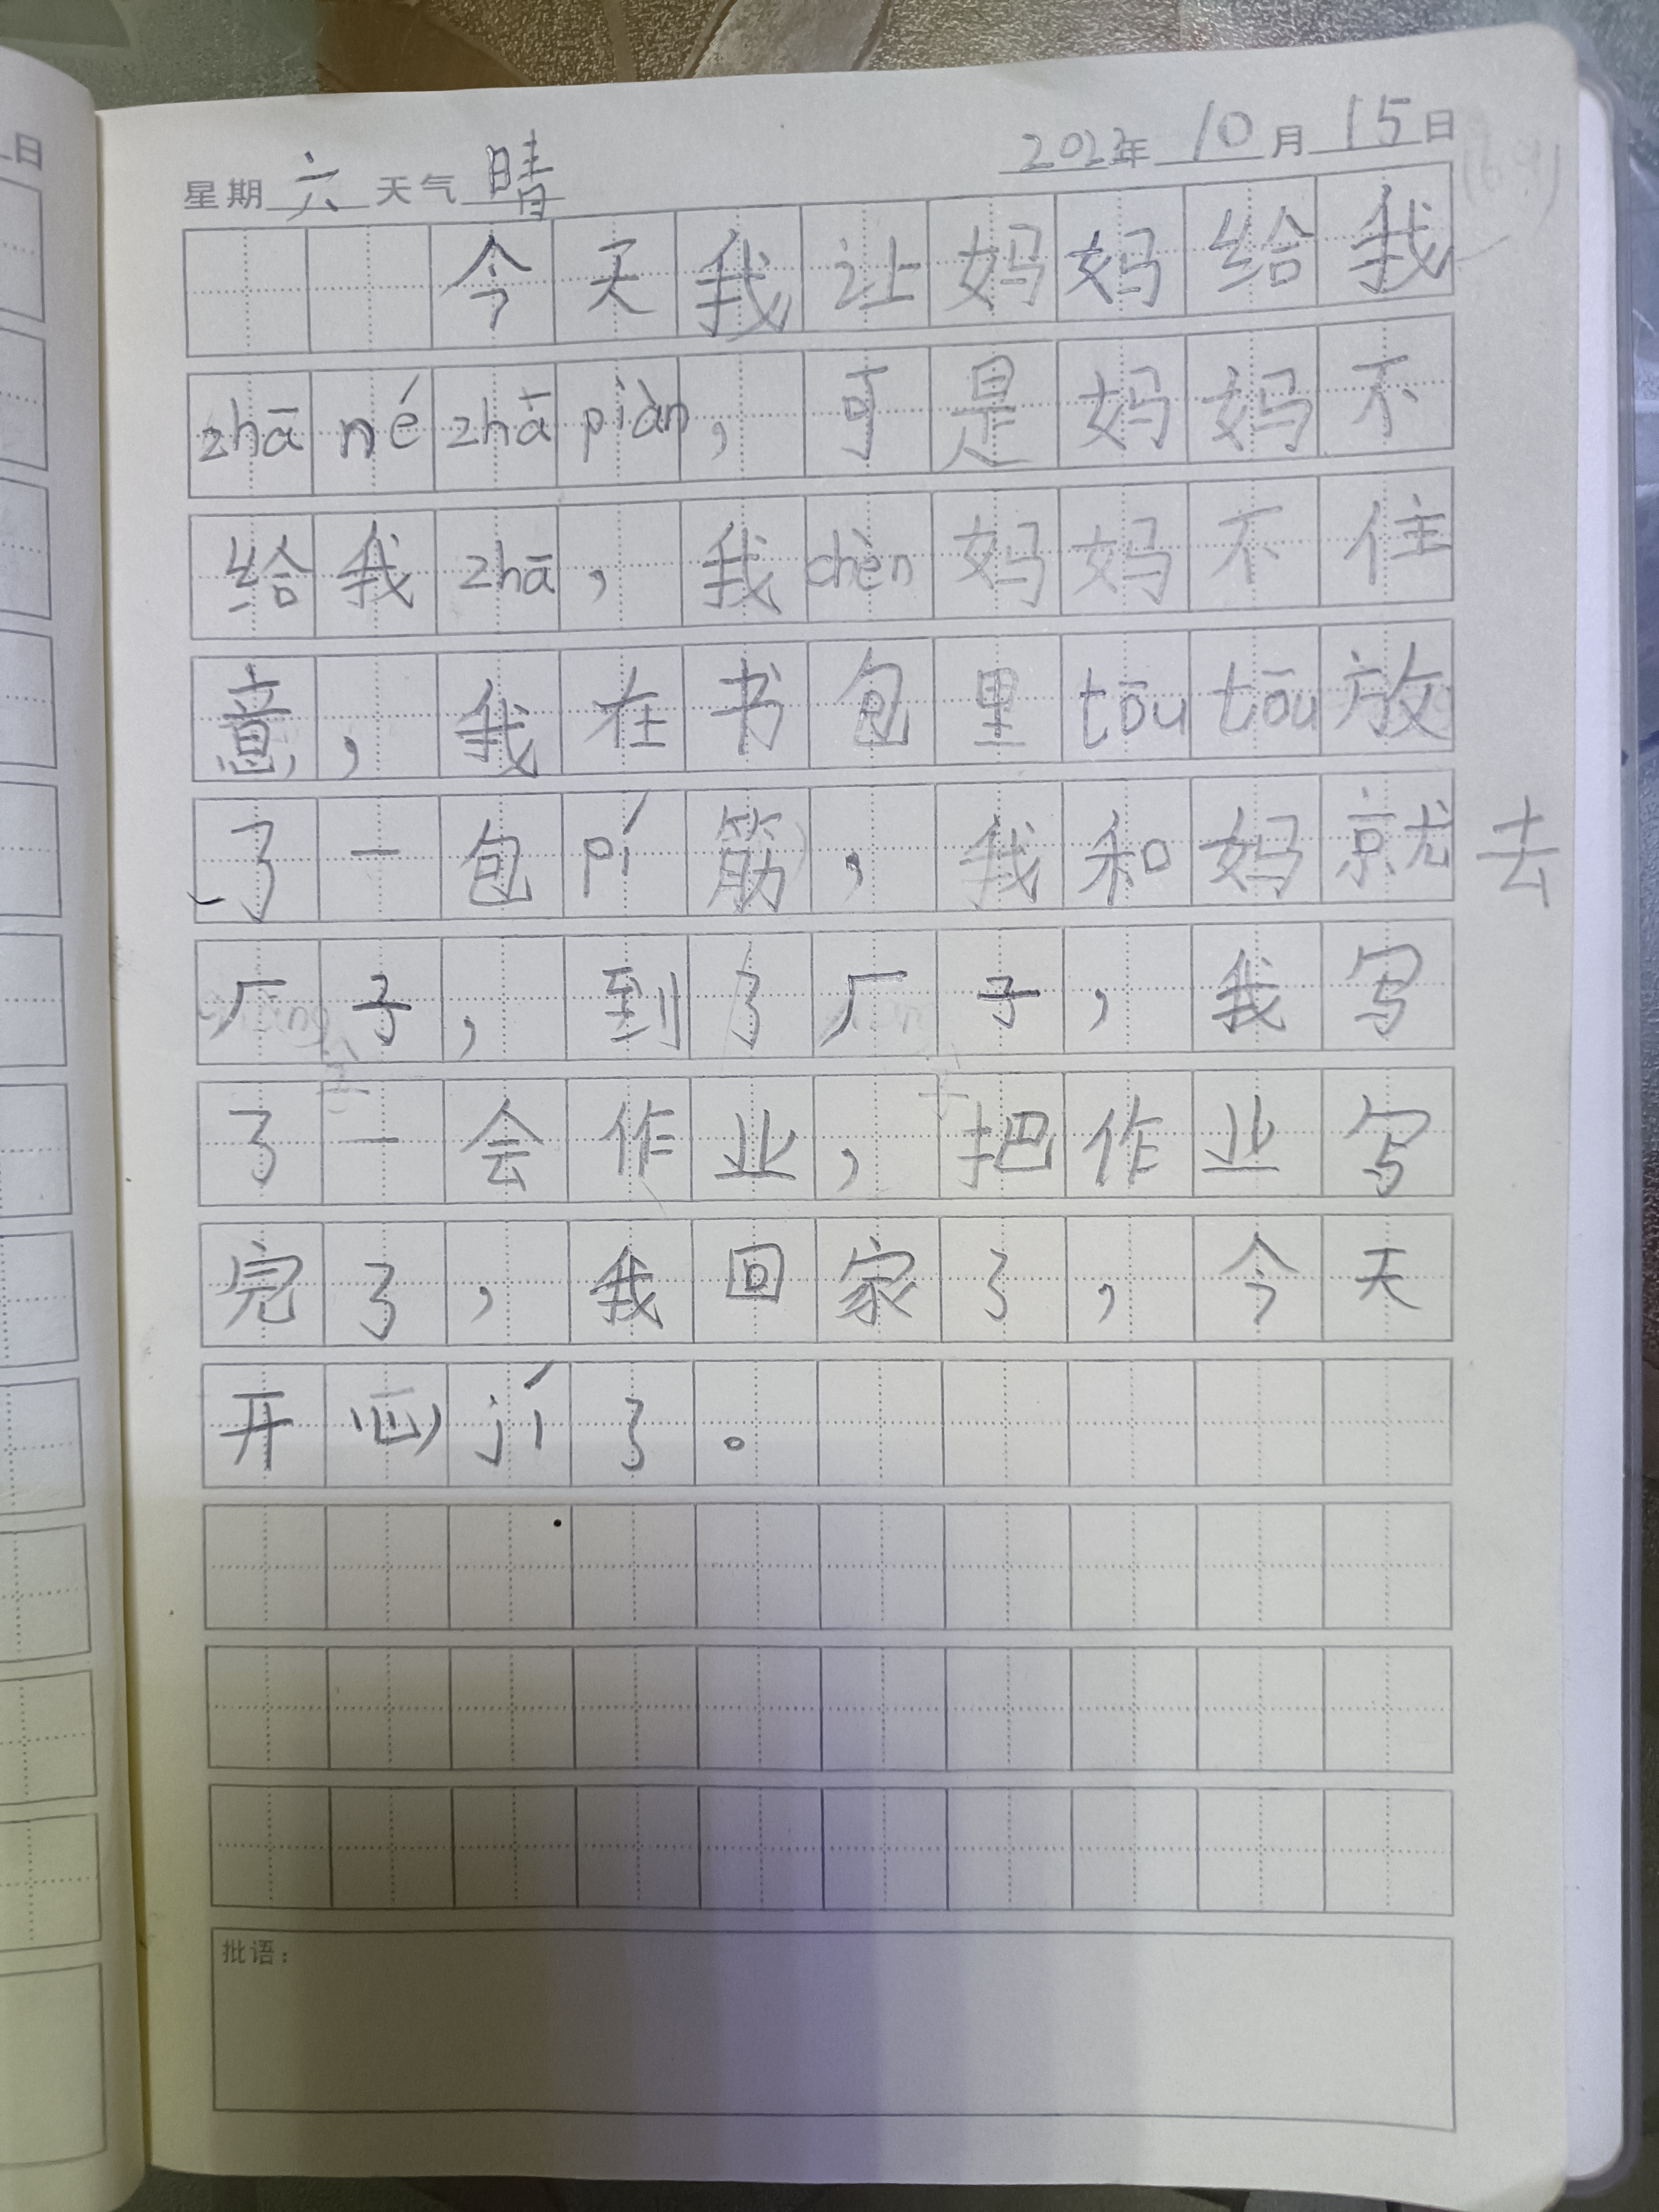 星期六天气晴 2022年10月15日
今天我让妈妈给我
zhā né zhā piàn，可是妈妈不
给我zhā，我chèn妈妈不住
意，我在书包里tōu tōu放
了一包pí筋，我和妈就去
厂子，到了厂子，我写
了一会作业，把作业写
完了，我回家了，今天
开心jí了。
批语：
日